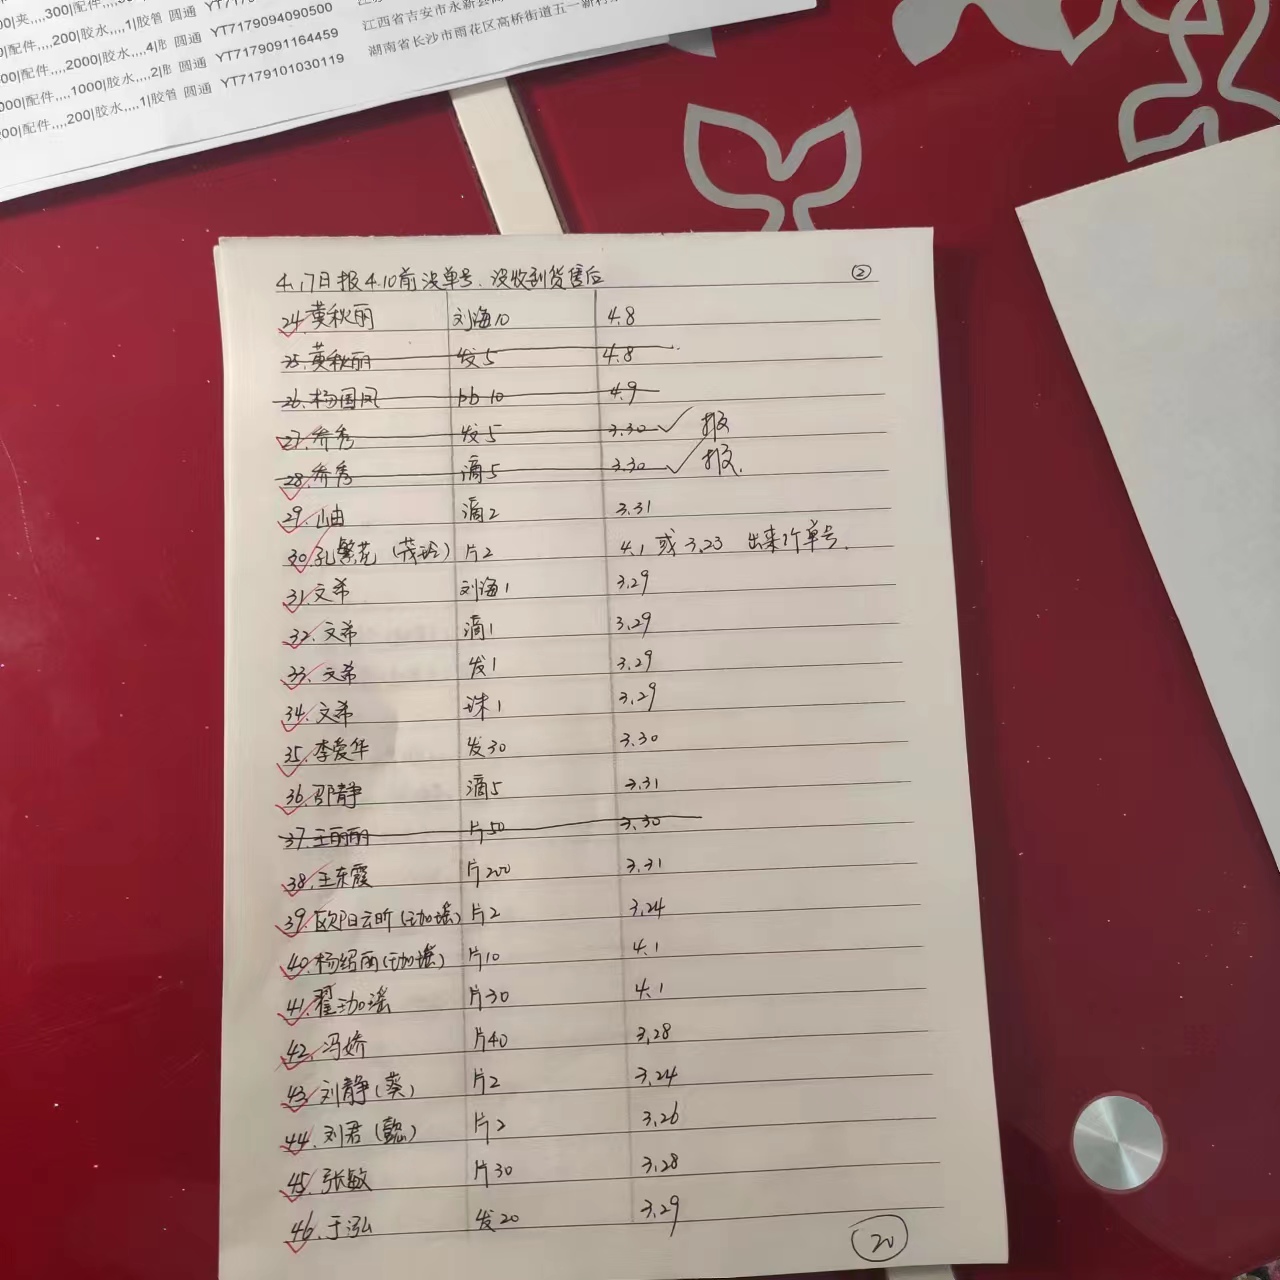 00|夹,,,,300|配件,,,,
|配件,,,,200|胶水,,,,1|胶管 圆通 YT7179094090500 江西省吉安市永新县
00|配件,,,,2000|胶水,,,,4| 圆通 YT7179091164459 湖南省长沙市雨花区高桥街道五一新村
000|配件,,,,1000|胶水,,,,2| 圆通 YT7179101030119
200|配件,,,,200|胶水,,,,1|胶管 圆通
4.17日报4.10前没单号.没收到货售后 ②
24.黄秋丽 刘海10 4.8
25.黄秋丽 发5 4.8
26.杨国凤 bb 10 4.9
27.乔秀 发5 3.30 ✓ 报
28.乔秀 滴5 3.30 ✓ 报.
29.山由 滴2 3.31
30.孔繁花(茂玲) 片2 4.1 或 3.23 出来1个单号.
31.文希 刘海1 3.29
32.文希 滴1 3.29
33.文希 发1 3.29
34.文希 珠1 3.29
35.李爱华 发30 3.30
36.邵静 滴5 3.31
37.王丽丽 片50 3.30
38.王东霞 片200 3.31
39.欧阳云昕(珈瑶) 片2 3.24
40.杨绍丽(珈瑶) 片10 4.1
41.翟珈瑶 片30 4.1
42.冯娇 片40 3.28
43.刘静(葵) 片2 3.24
44.刘君(懿) 片2 3.26
45.张敏 片30 3.28
46.于泓 发20 3.29
20